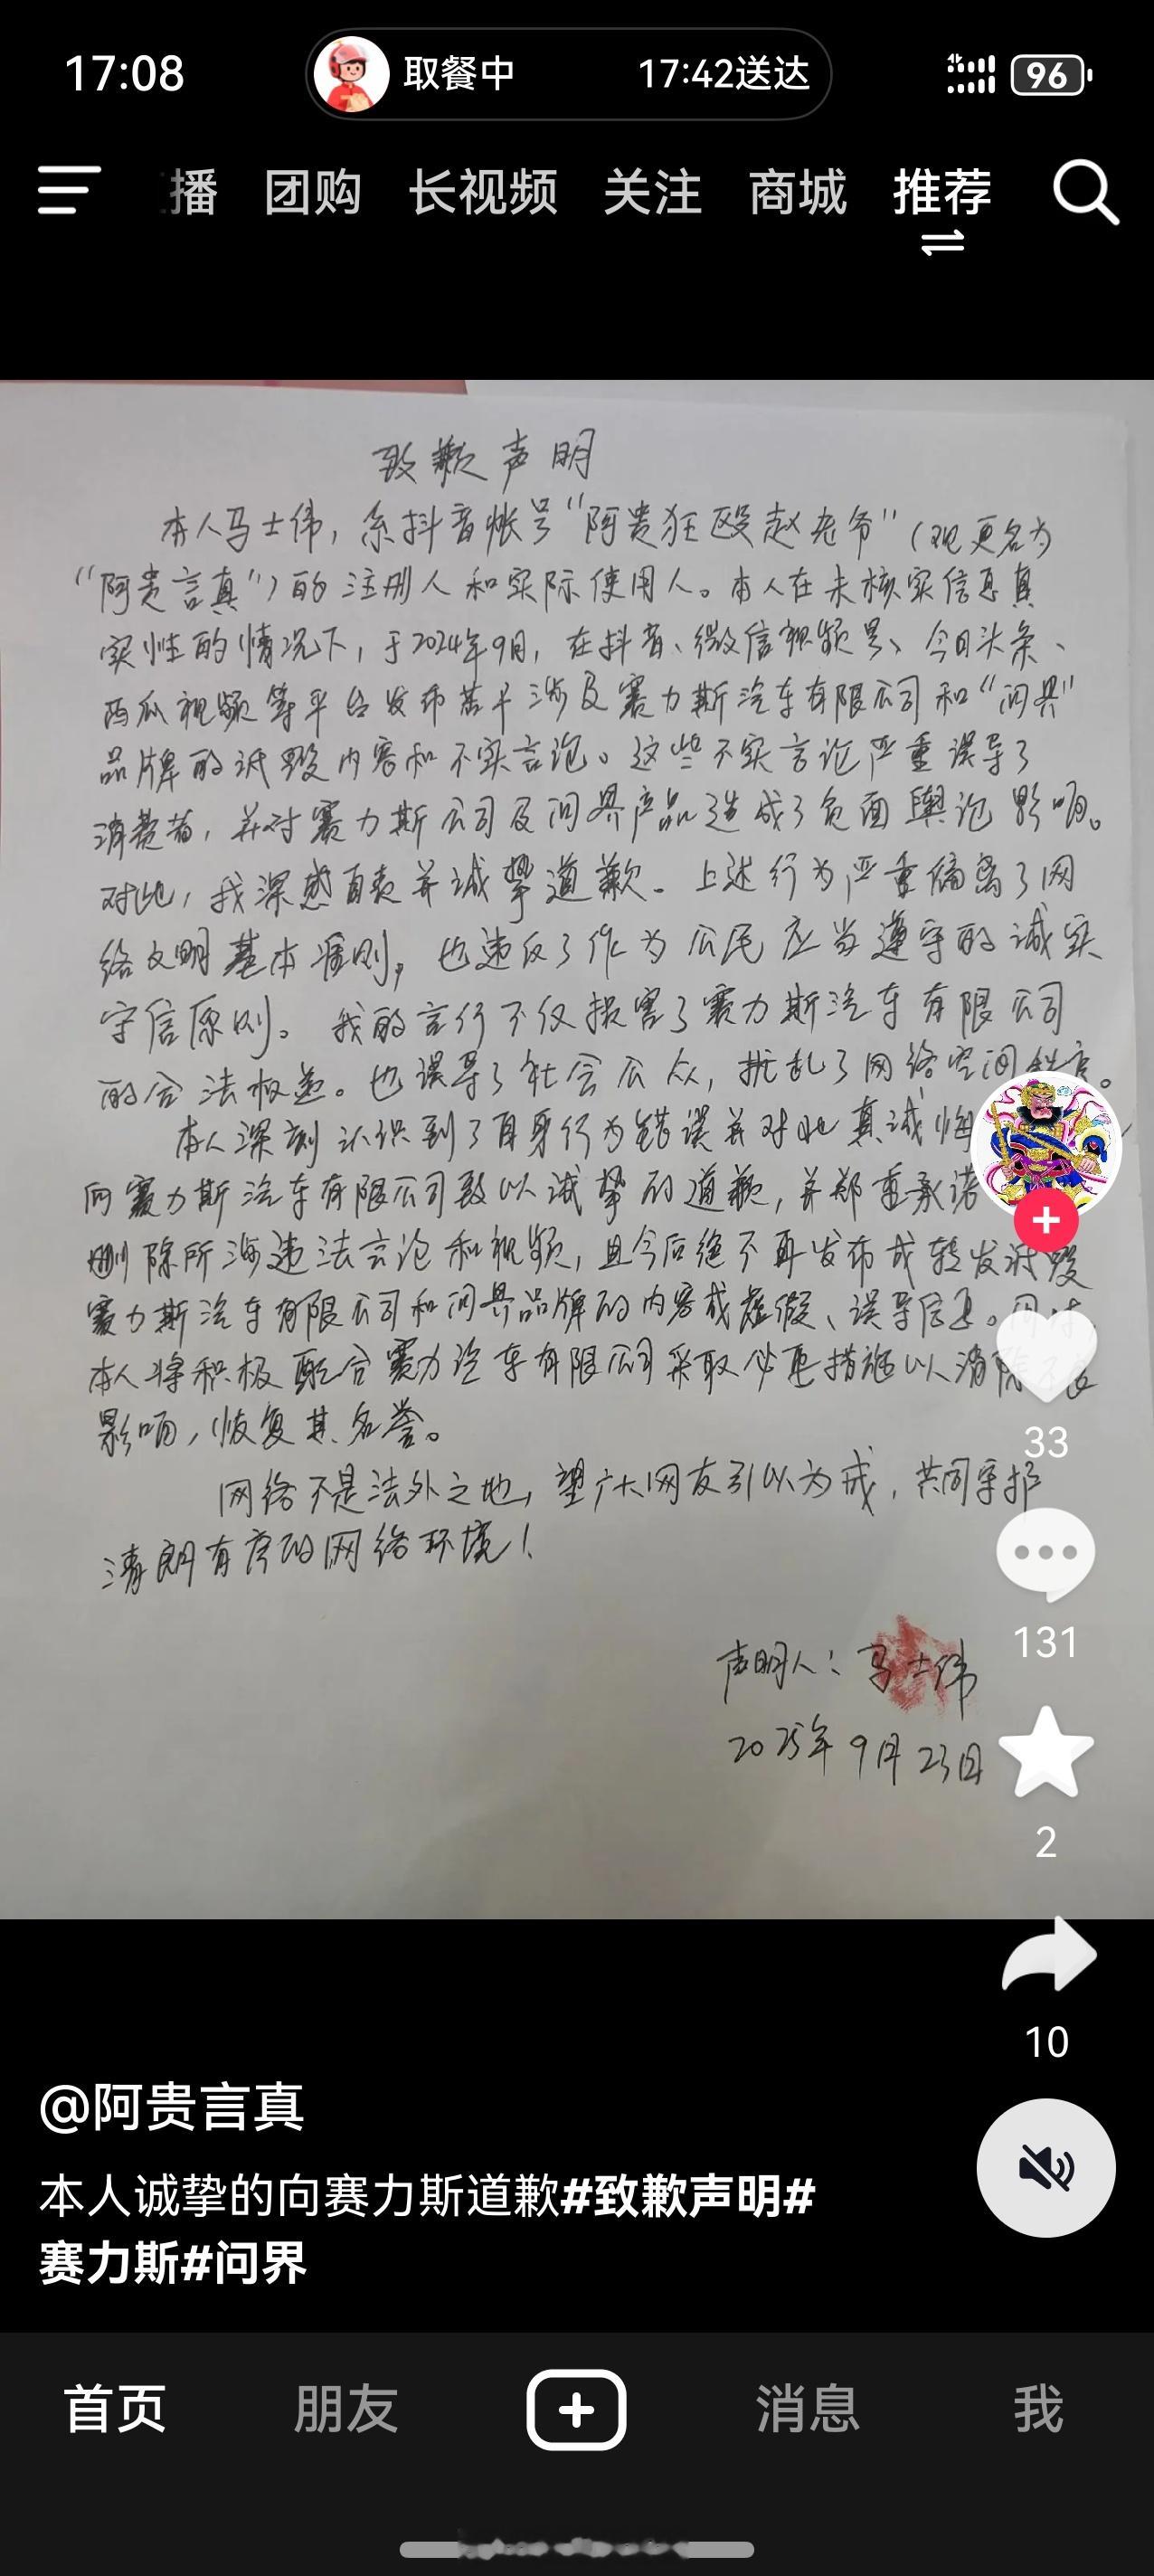 17:08
取餐中
17:42送达
96
播 团购 长视频 关注 商城 推荐
致歉声明
本人马士伟，系抖音帐号“阿贵狂殴赵老爷”（现更名为
“阿贵言真”）的注册人和实际使用人。本人在未核实信息真
实性的情况下，于2024年9月，在抖音、微信视频号、今日头条、
西瓜视频等平台发布若干涉及赛力斯汽车有限公司和“问界”
品牌的诋毁内容和不实言论。这些不实言论严重误导了
消费者，并对赛力斯公司及问界产品造成了负面舆论影响。
对此，我深感自责并诚挚道歉。上述行为严重偏离了网
络文明基本准则，也违反了作为公民应当遵守的诚实
守信原则。我的言行不仅损害了赛力斯汽车有限公司
的合法权益。也误导了社会公众，扰乱了网络空间秩序。
本人深刻认识到了自身行为错误并对此真诚悔
向赛力斯汽车有限公司致以诚挚的道歉，并郑重承诺
删除所涉违法言论和视频，且今后绝不再发布或转发诋毁
赛力斯汽车有限公司和问界品牌的内容或虚假、误导信息。同时，
本人将积极配合赛力汽车有限公司采取必要措施以消除不良
影响，恢复其名誉。
网络不是法外之地，望广大网友引以为戒，共同守护
清朗有序的网络环境！
声明人：马士伟
2025年9月23日
33
131
2
10
@阿贵言真
本人诚挚的向赛力斯道歉#致歉声明#
赛力斯#问界
首页 朋友 消息 我